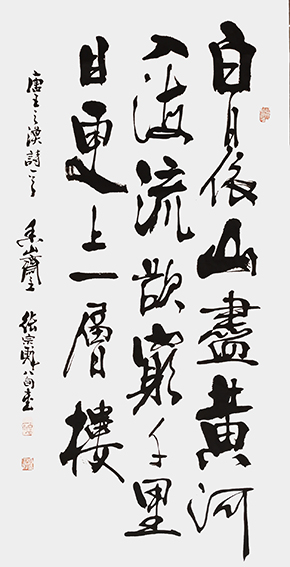 白日依山盡黄河
入海流欲窮千里
目更上一層樓
唐王之渙詩一首 山齋